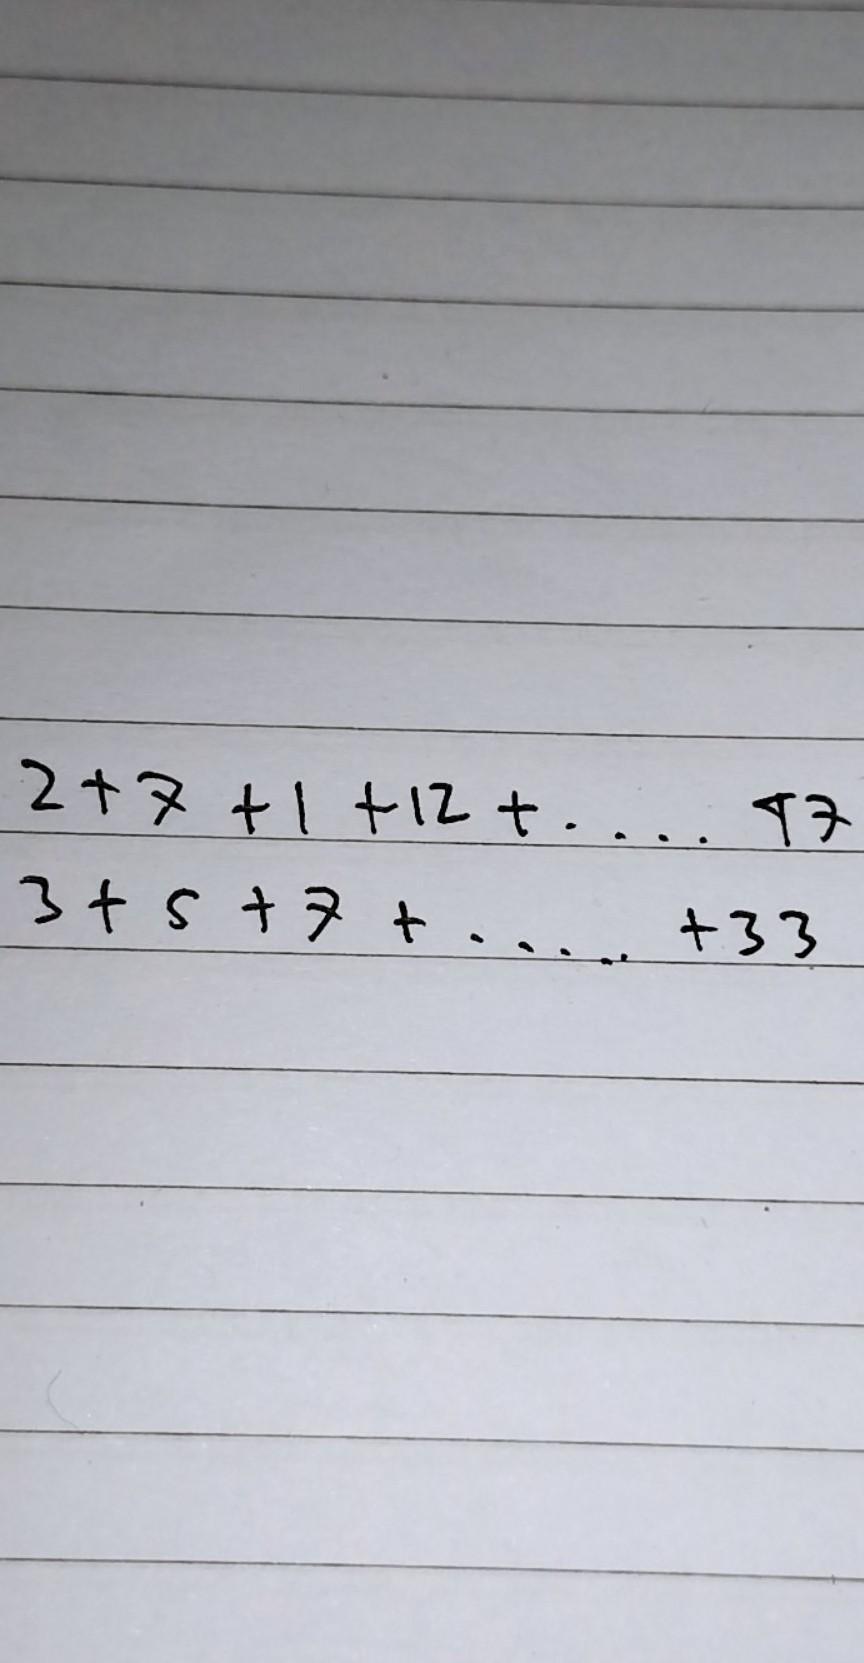 2 + 7 + 1 + 12 + ..... 47
3 + 5 + 7 + ..... + 33